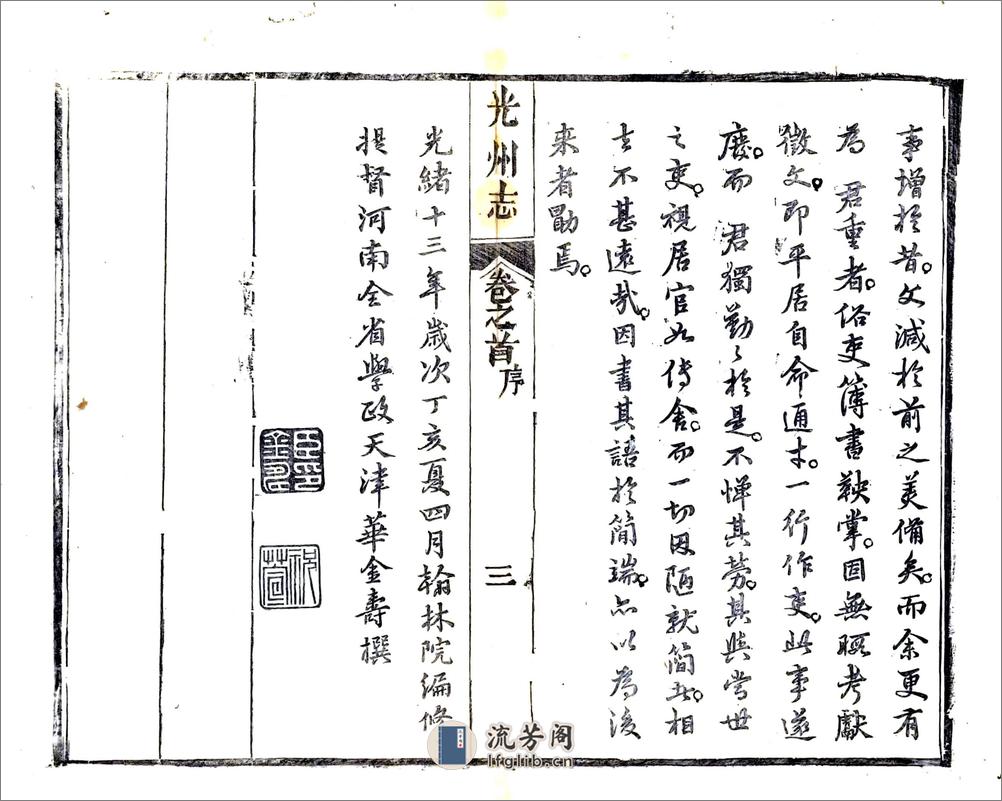 事增於昔文減於前之美備矣而余更有
為 君重者俗吏簿書鞅掌固無暇考獻
徵文即平居自命通才一行作吏此事遂
廢而 君獨勤〻於是不憚其勞其與當世
之吏視居官如傳舍而一切因陋就簡者相
去不甚遠哉因書其語於簡端亦以為後
来者勖焉
光州志
卷之首 序
三
光緒十三年歲次丁亥夏四月翰林院編修
提督河南全省學政天津華金壽撰
流芳阁
lfglib.cn